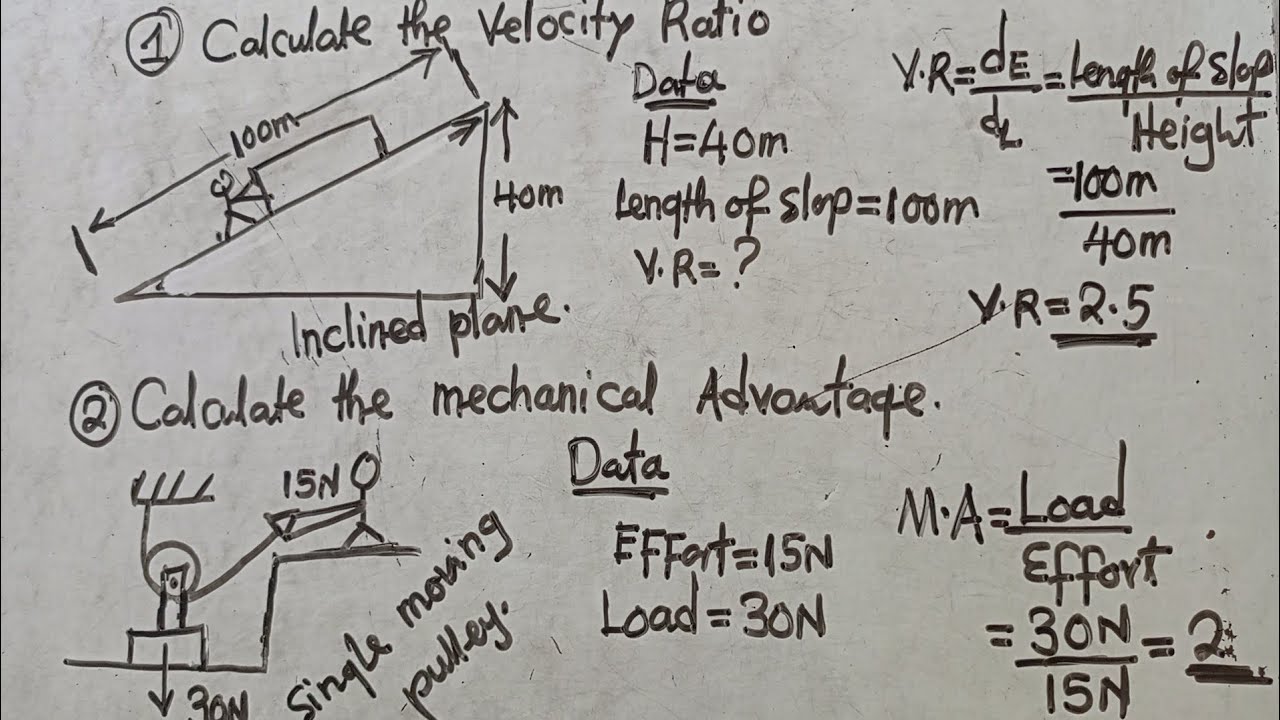 ① Calculate the Velocity Ratio
100m
40m
Inclined plane.
Data
H=40m
Length of Slop=100m
V.R=?
V.R=dE/dL=Length of Slop/Height
=100m/40m
V.R=2.5
② Calculate the mechanical Advantage.
15N
30N
Single moving
pulley.
Data
Effort=15N
Load=30N
M.A=Load/Effort
=30N/15N=2